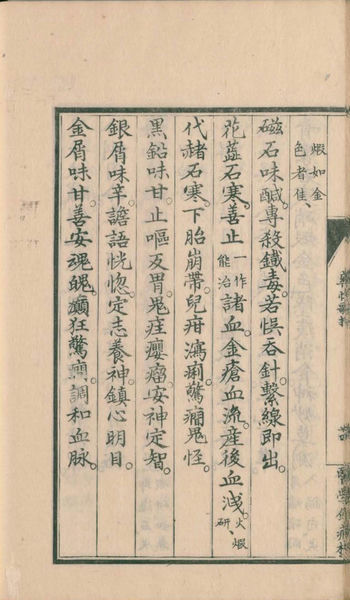 煆如金
色者佳
磁石味醎。專殺鐵毒。若悮吞針。繫線即出。
花蕋石寒。善止一作能治諸血。金瘡血流。産後血洩。火煆研
代赭石寒。下胎崩帶。兒疳瀉痢。驚癎鬼怪。
黑鉛味甘。止嘔及胃。鬼疰癭瘤。安神定智。
銀屑味辛。譫語恍惚。定志養神。鎮心明目。
金屑味甘。善安魂魄。癲狂驚癎。調和血脉。